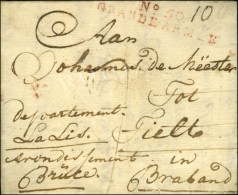 No
GRANDE ARMÉE
10
Aan
Johannes de Meester
Tot
departement
La Lis. Tielt
arondissement in
Brúke. Braband